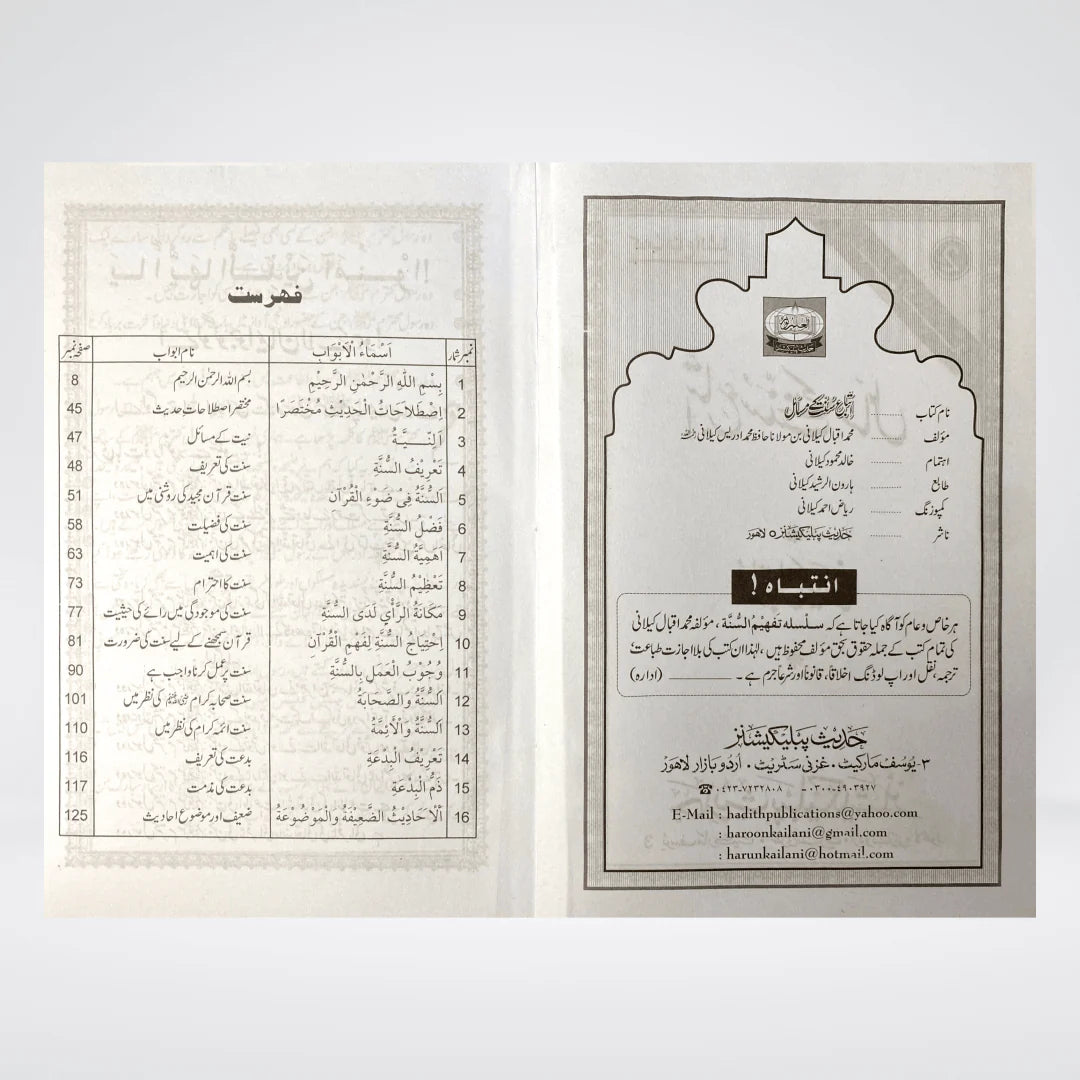 نام کتاب ......... اتباع سنت کے مسائل
مؤلف ......... محمد اقبال کیلانی بن مولانا حافظ محمد ادریس کیلانی رحمہ اللہ
اہتمام ......... خالد محمود کیلانی
طابع ......... ہارون الرشید کیلانی
کمپوزنگ ......... ریاض احمد کیلانی
ناشر ......... حدیث پبلیکیشنز لاہور
انتباہ !
ہر خاص و عام کو آگاہ کیا جاتا ہے کہ سلسلہ تفہیم السنۃ، مؤلفہ محمد اقبال کیلانی
کی تمام کتب کے جملہ حقوق بحق مؤلف محفوظ ہیں، لہٰذا ان کتب کی بلا اجازت طباعت
ترجمہ، نقل اور اپ لوڈنگ اخلاقاً، قانوناً اور شرعاً جرم ہے۔ ________ (ادارہ)
حدیث پبلیکیشنز
۳- یوسف مارکیٹ۔ غزنی سٹریٹ۔ اردو بازار لاہور
☎ ۰۴۲۳-۷۲۳۲۸۰۸ – ۰۳۰۰-۴۹۰۳۹۲۷
E-Mail : hadithpublications@yahoo.com
: haroonkailani@gmail.com
: harunkailani@hotmail.com
فہرست
نمبر شمار اَسْمَاءُ الْاَبْوَابِ نام ابواب صفحہ نمبر
1 بِسْمِ اللّٰهِ الرَّحْمٰنِ الرَّحِيْمِ بسم اللہ الرحمٰن الرحیم 8
2 اِصْطِلَاحَاتُ الْحَدِيْثِ مُخْتَصَرًا مختصر اصطلاحات حدیث 45
3 اَلنِّـــيَّـــةُ نیت کے مسائل 47
4 تَعْرِيْفُ السُّنَّةِ سنت کی تعریف 48
5 اَلسُّنَّةُ فِىْ ضَوْءِ الْقُرْآنِ سنت قرآن مجید کی روشنی میں 51
6 فَضْلُ السُّنَّةِ سنت کی فضیلت 58
7 اَهَمِيَّةُ السُّنَّةِ سنت کی اہمیت 63
8 تَعْظِيْمُ السُّنَّةِ سنت کا احترام 73
9 مَكَانَةُ الرَّأْىِ لَدَى السُّنَّةِ سنت کی موجودگی میں رائے کی حیثیت 77
10 اِحْتِيَاجُ السُّنَّةِ لِفَهْمِ الْقُرْآنِ قرآن سمجھنے کے لیے سنت کی ضرورت 81
11 وُجُوْبُ الْعَمَلِ بِالسُّنَّةِ سنت پر عمل کرنا واجب ہے 90
12 اَلسُّنَّةُ وَالصَّحَابَةُ سنت صحابہ کرام کی نظر میں 101
13 اَلسُّنَّةُ وَالْاَئِمَّةُ سنت ائمہ کرام کی نظر میں 110
14 تَعْرِيْفُ الْبِدْعَةِ بدعت کی تعریف 116
15 ذَمُّ الْبِدْعَةِ بدعت کی مذمت 117
16 اَلْاَحَادِيْثُ الضَّعِيْفَةُ وَالْمَوْضُوْعَةُ ضعیف اور موضوع احادیث 125